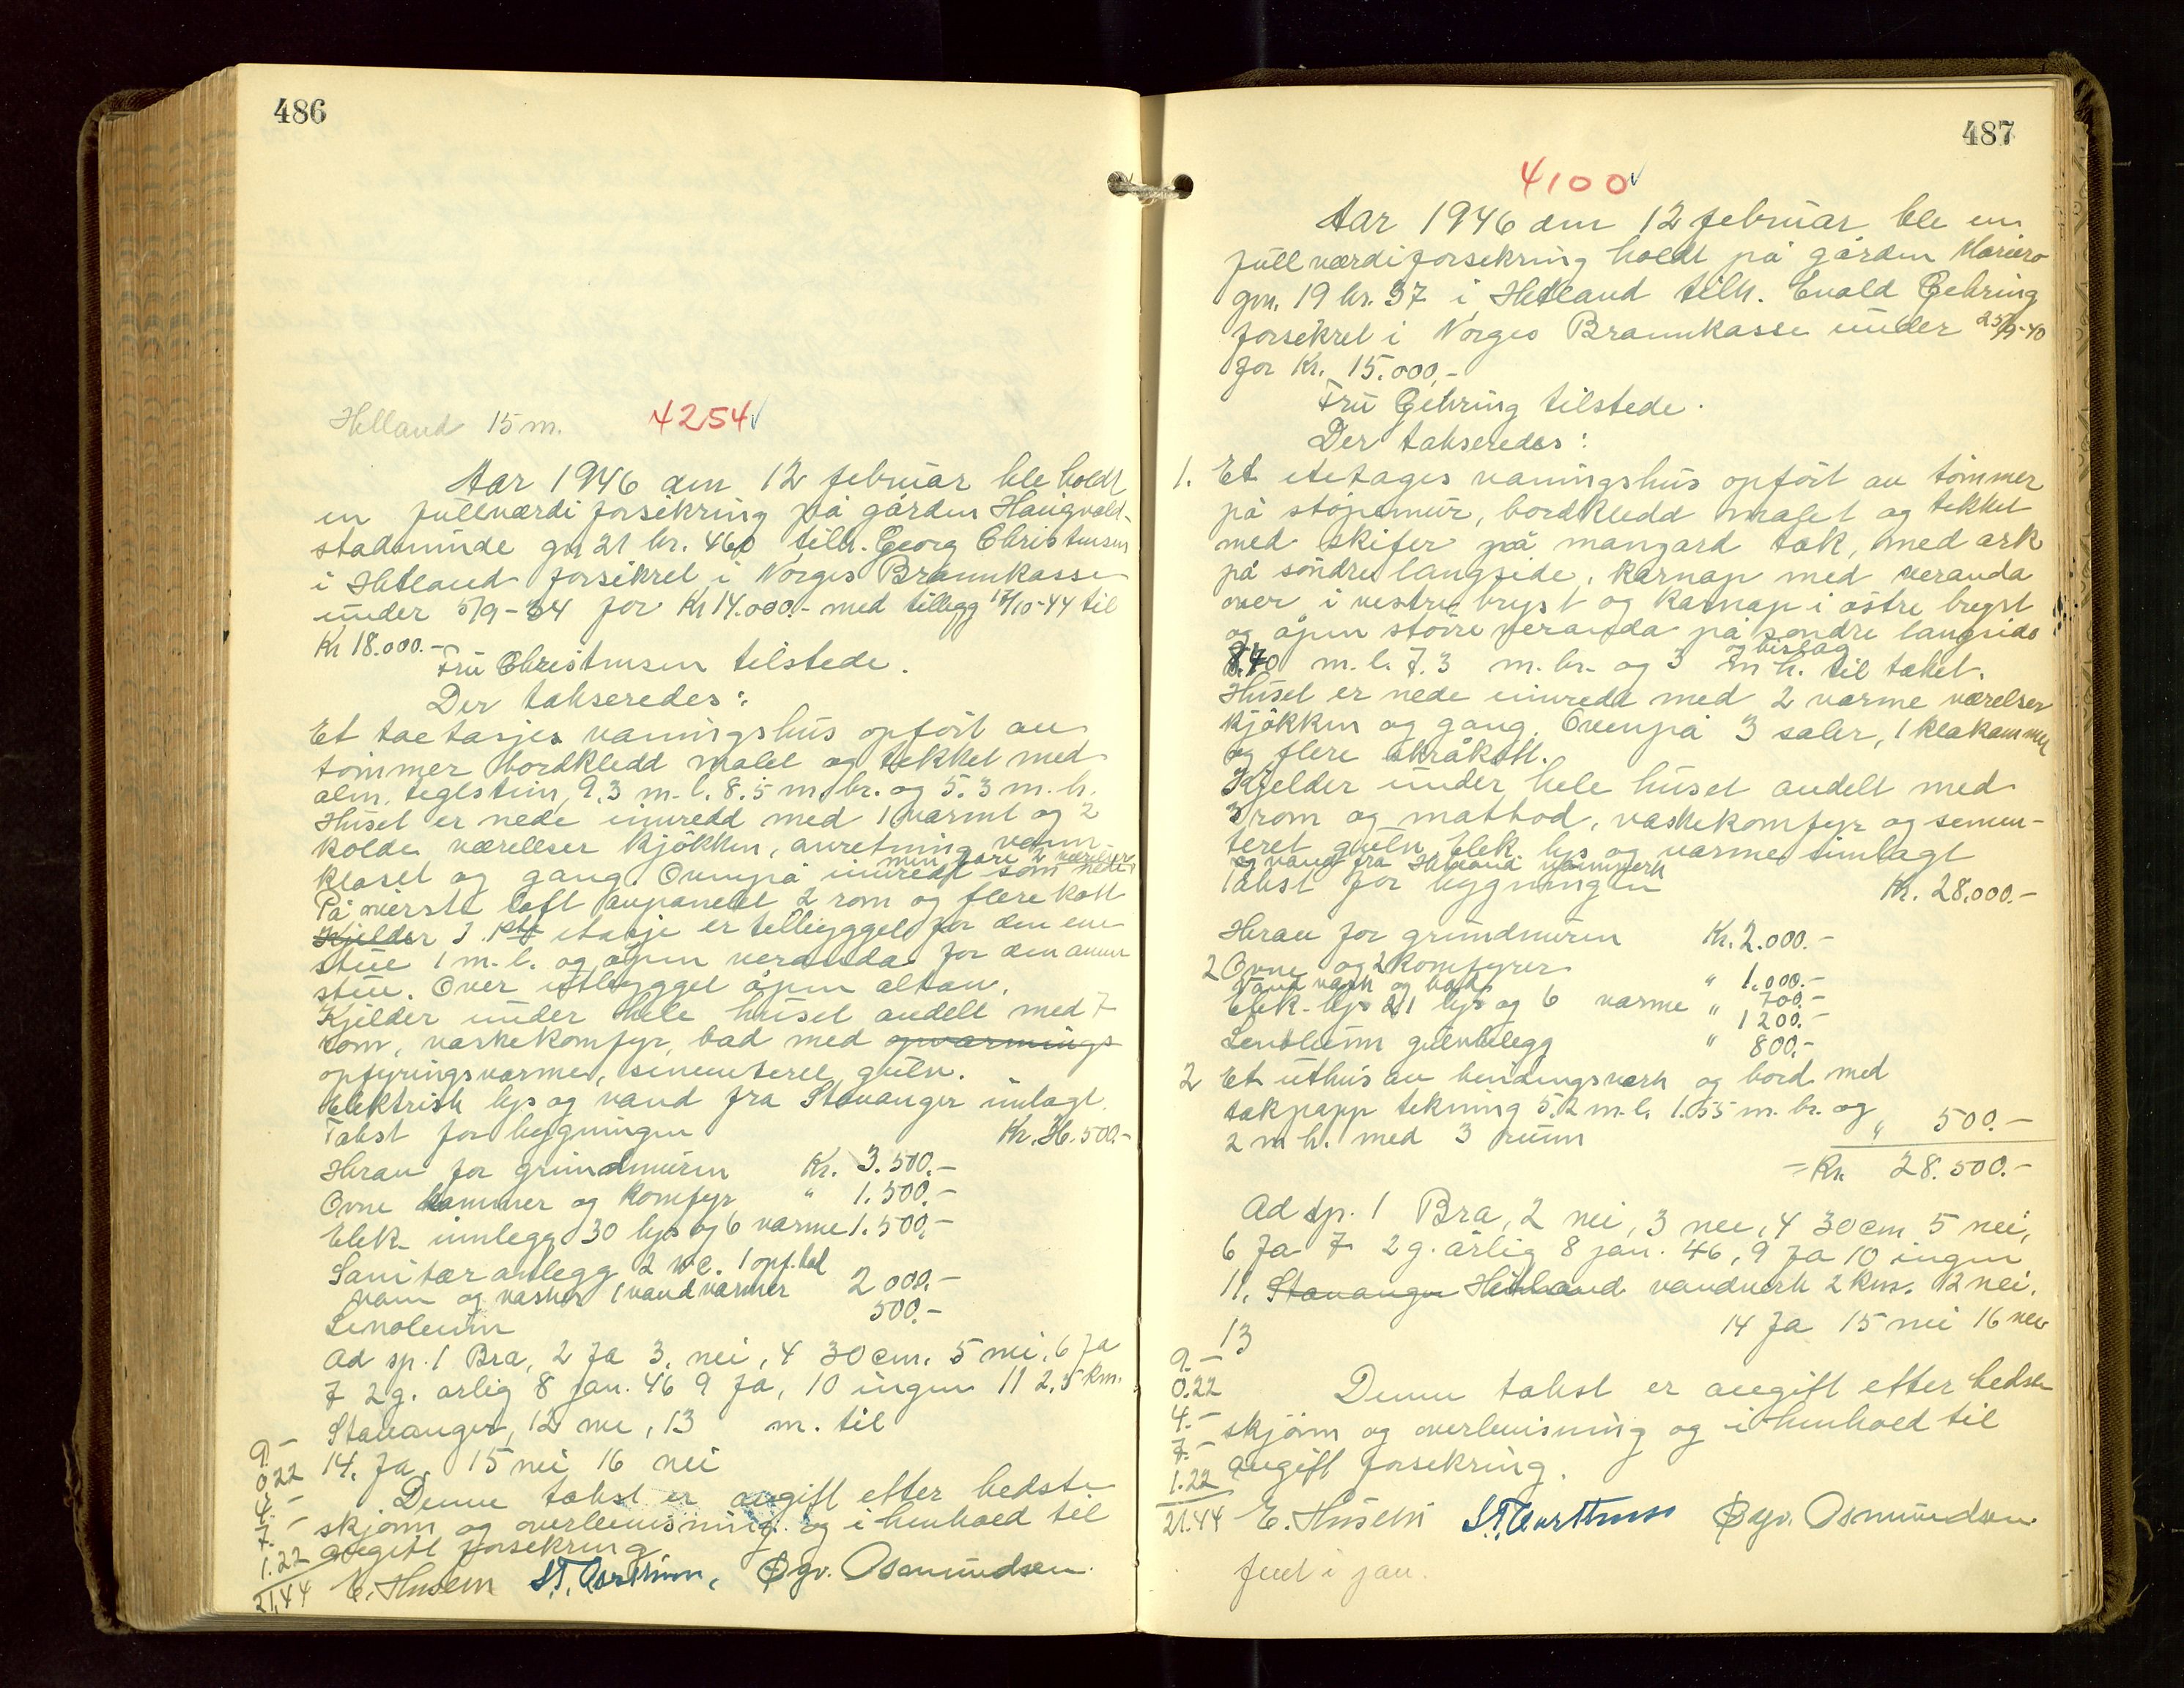 486
Helland 15 m. 4254
Aar 1946 den 12 februar ble holdt
en fullværdi forsikring på gården Haugvald-
stadminde gn 21 br. 460 tilh. Georg Christensen
i Hetland forsikret i Norges Brannkasse
under 5/9-34 for Kr 14.000.- med tillegg 17/10-44 til
Kr 18.000.-
Fru Christensen tilstede.
Der takseredes:
Et toetasjes vaningshus opført av
tømmer bordkledd malet og tekket med
alm. teglstein, 9.3 m. l. 8.5 m. br. og 5.3 m. h.
Huset er nede innredd med 1 varmt og 2
kolde værelser kjøkken, anretning vann-
men bare 2 værelser
kloset og gang. Ovenpå innredt som nede
På øverste loft avpanelet 2 rom og flere kott
Kjelder I 1ste etasje er tilbygget for den ene
stue 1 m. l. og åpen veranda for den annen
stue. Over utbygget åpen altan.
Kjelder under hele huset avdelt med 7
rom, vaskekomfyr, bad med opvarmings
opfyringsvarme, sementeret gulv.
Elektrisk lys og vand fra Stavanger innlagt.
Takst for bygningen Kr. 36.500.-
Herav for grundmuren Kr. 3.500.-
Ovne kaminer og komfyr " 1.500.-
Elek- innlegg 30 lys og 6 varme 1.500.-
Sanitær anlegg 2 wc. 1 opf. bad
vann og vasker 1 vandvarmer 2000.-
Linoleum 500.-
Ad sp. 1 Bra, 2 Ja 3. nei, 4 30 cm. 5 nei. 6 Ja
7 2 g. årlig 8 jan. 46 9 Ja, 10 ingen 11 2,5 km.
Stavanger, 12 nei, 13 m. til
14. Ja. 15 nei 16 nei
Denne takst er avgitt efter bedste
skjønn og overbevisning og i henhold til
avgitt forsikring
9.-
0.22
4.-
7.-
1.22
21,44
E. Husebø Øyv. Osmundsen.
487
4100
Aar 1946 den 12 februar ble en
fullværdiforsikring holdt på gården Mariero
gn. 19 br. 37 i Hetland tilh. Evald Gehring
forsikret i Norges Brannkasse under 25/9-40
for Kr. 15.000.-
Fru Gehring tilstede.
Der takseredes:
1. Et etetages vaningshus opført av tømmer
på støpemur, bordkledd malet og tekket
med skifer på mangard tak, med ark
på søndre langside, karnap med veranda
over i vestre bryst og karnap i østre bryst
og åpen større veranda på søndre langside
og bislag
8.40 m. l. 7.3 m. br. og 3 m h. til taket.
Huset er nede innredd med 2 varme værelser
kjøkken og gang. Ovenpå 3 saler, 1 klekammer
og flere skråkott.
Kjelder under hele huset avdelt med
3 rom og matbod, vaskekomfyr og semen-
teret gulv. Elek. lys og varme innlagt
og vand fra Hetland vannverk
Takst for bygningen Kr. 28.000.-
Herav for grundmuren Kr. 2.000.-
2 Ovne og 2 komfyrer " 1.000.-
Vand vask og bad 700.-
Elek- lys 21 lys og 6 varme " 1200.-
Linoleum gulvbelegg " 800.-
2 Et uthus av bindingsverk og bord med
takpapp tekning 5.2 m. l. 1.55 m. br. og
2 m h. med 3 rum " 500.-
= Kr. 28.500.-
Ad sp. 1 Bra, 2 nei, 3 nei, 4 30 cm 5 nei,
6 Ja 7 2 g. årlig 8 jan. 46, 9 Ja 10 ingen
11. Stavanger Hetland vandverk 2 km. 12 nei.
13 14 Ja 15 nei 16 nei
Denne takst er avgitt efter bedste
skjønn og overbevisning og i henhold til
avgitt forsikring.
9.-
0.22
4.-
7.-
1.22
21.44
E. Husebø Øyv. Osmundsen